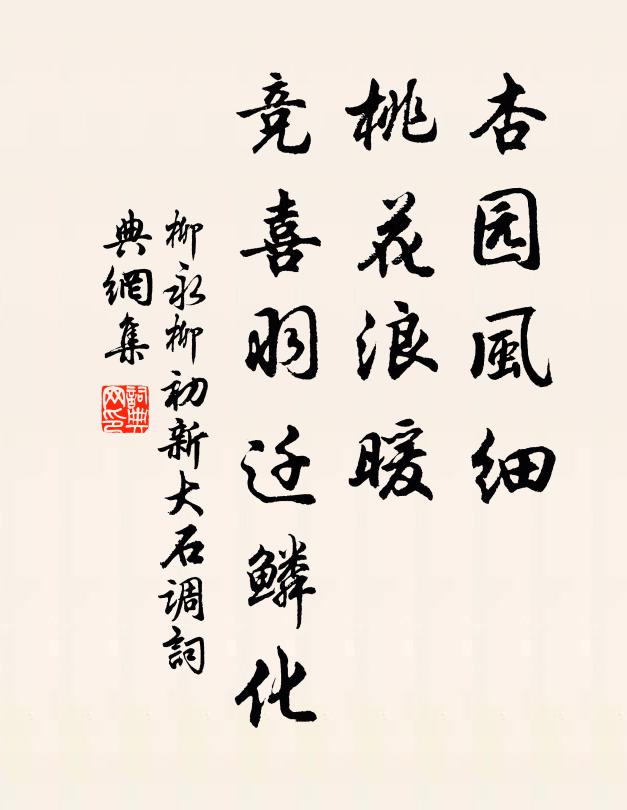 杏园風细
桃花浪暖
竞喜羽迁鳞化
柳永柳初新大石调詞
典網集
詞典
网印